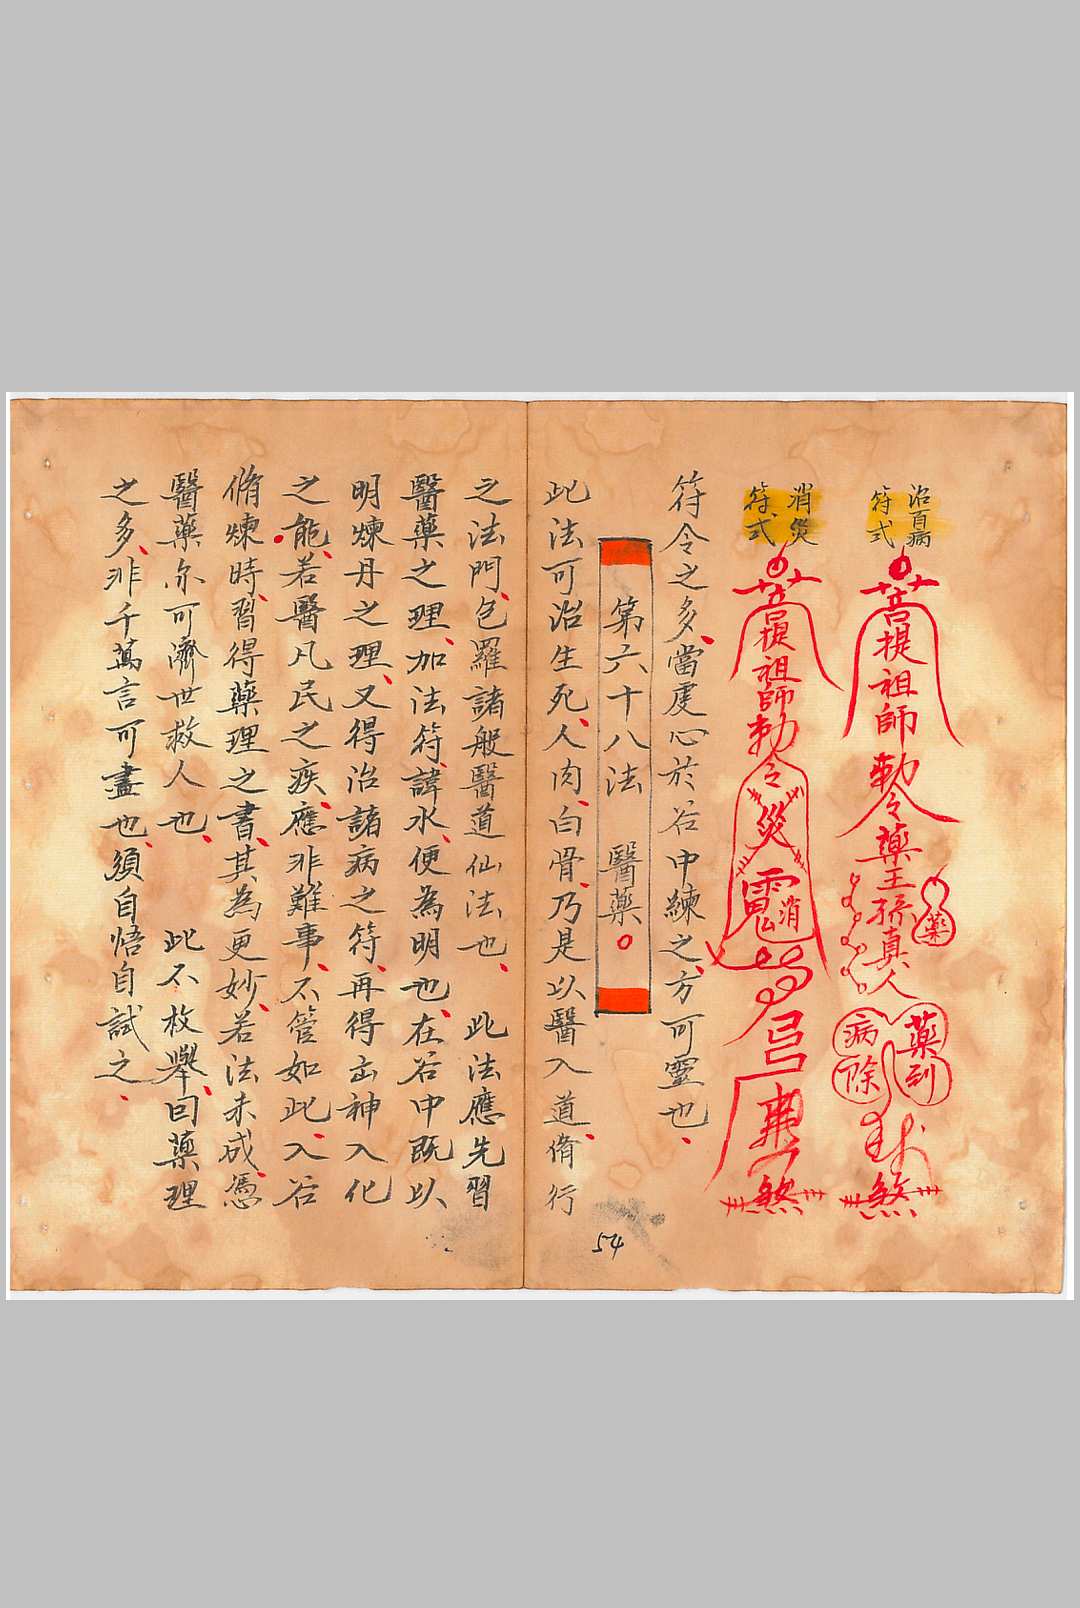 治百病
符式
菩提祖師勅令藥王孫真人
藥
藥到
病除
煞
消災
符式
菩提祖師勅令災
消
煞
符令之多、當虔心於谷中練之、方可靈也、
第六十八法 醫藥。
此法可治生死、人肉、白骨、乃是以醫入道、脩行
之法門、包羅諸般醫道仙法也、 此法應先習
醫藥之理、加法符、諱水、便為明也、在谷中既以
明煉丹之理、又得治諸病之符、再得出神入化
之能、若醫凡民之疾、應非難事、不管如此、入谷
脩煉時、習得藥理之書、其為更妙、若法未成、憑
醫藥亦可濟世救人也、 此不枚舉、囙藥理
之多、非千萬言可盡也、須自悟自試之、
54